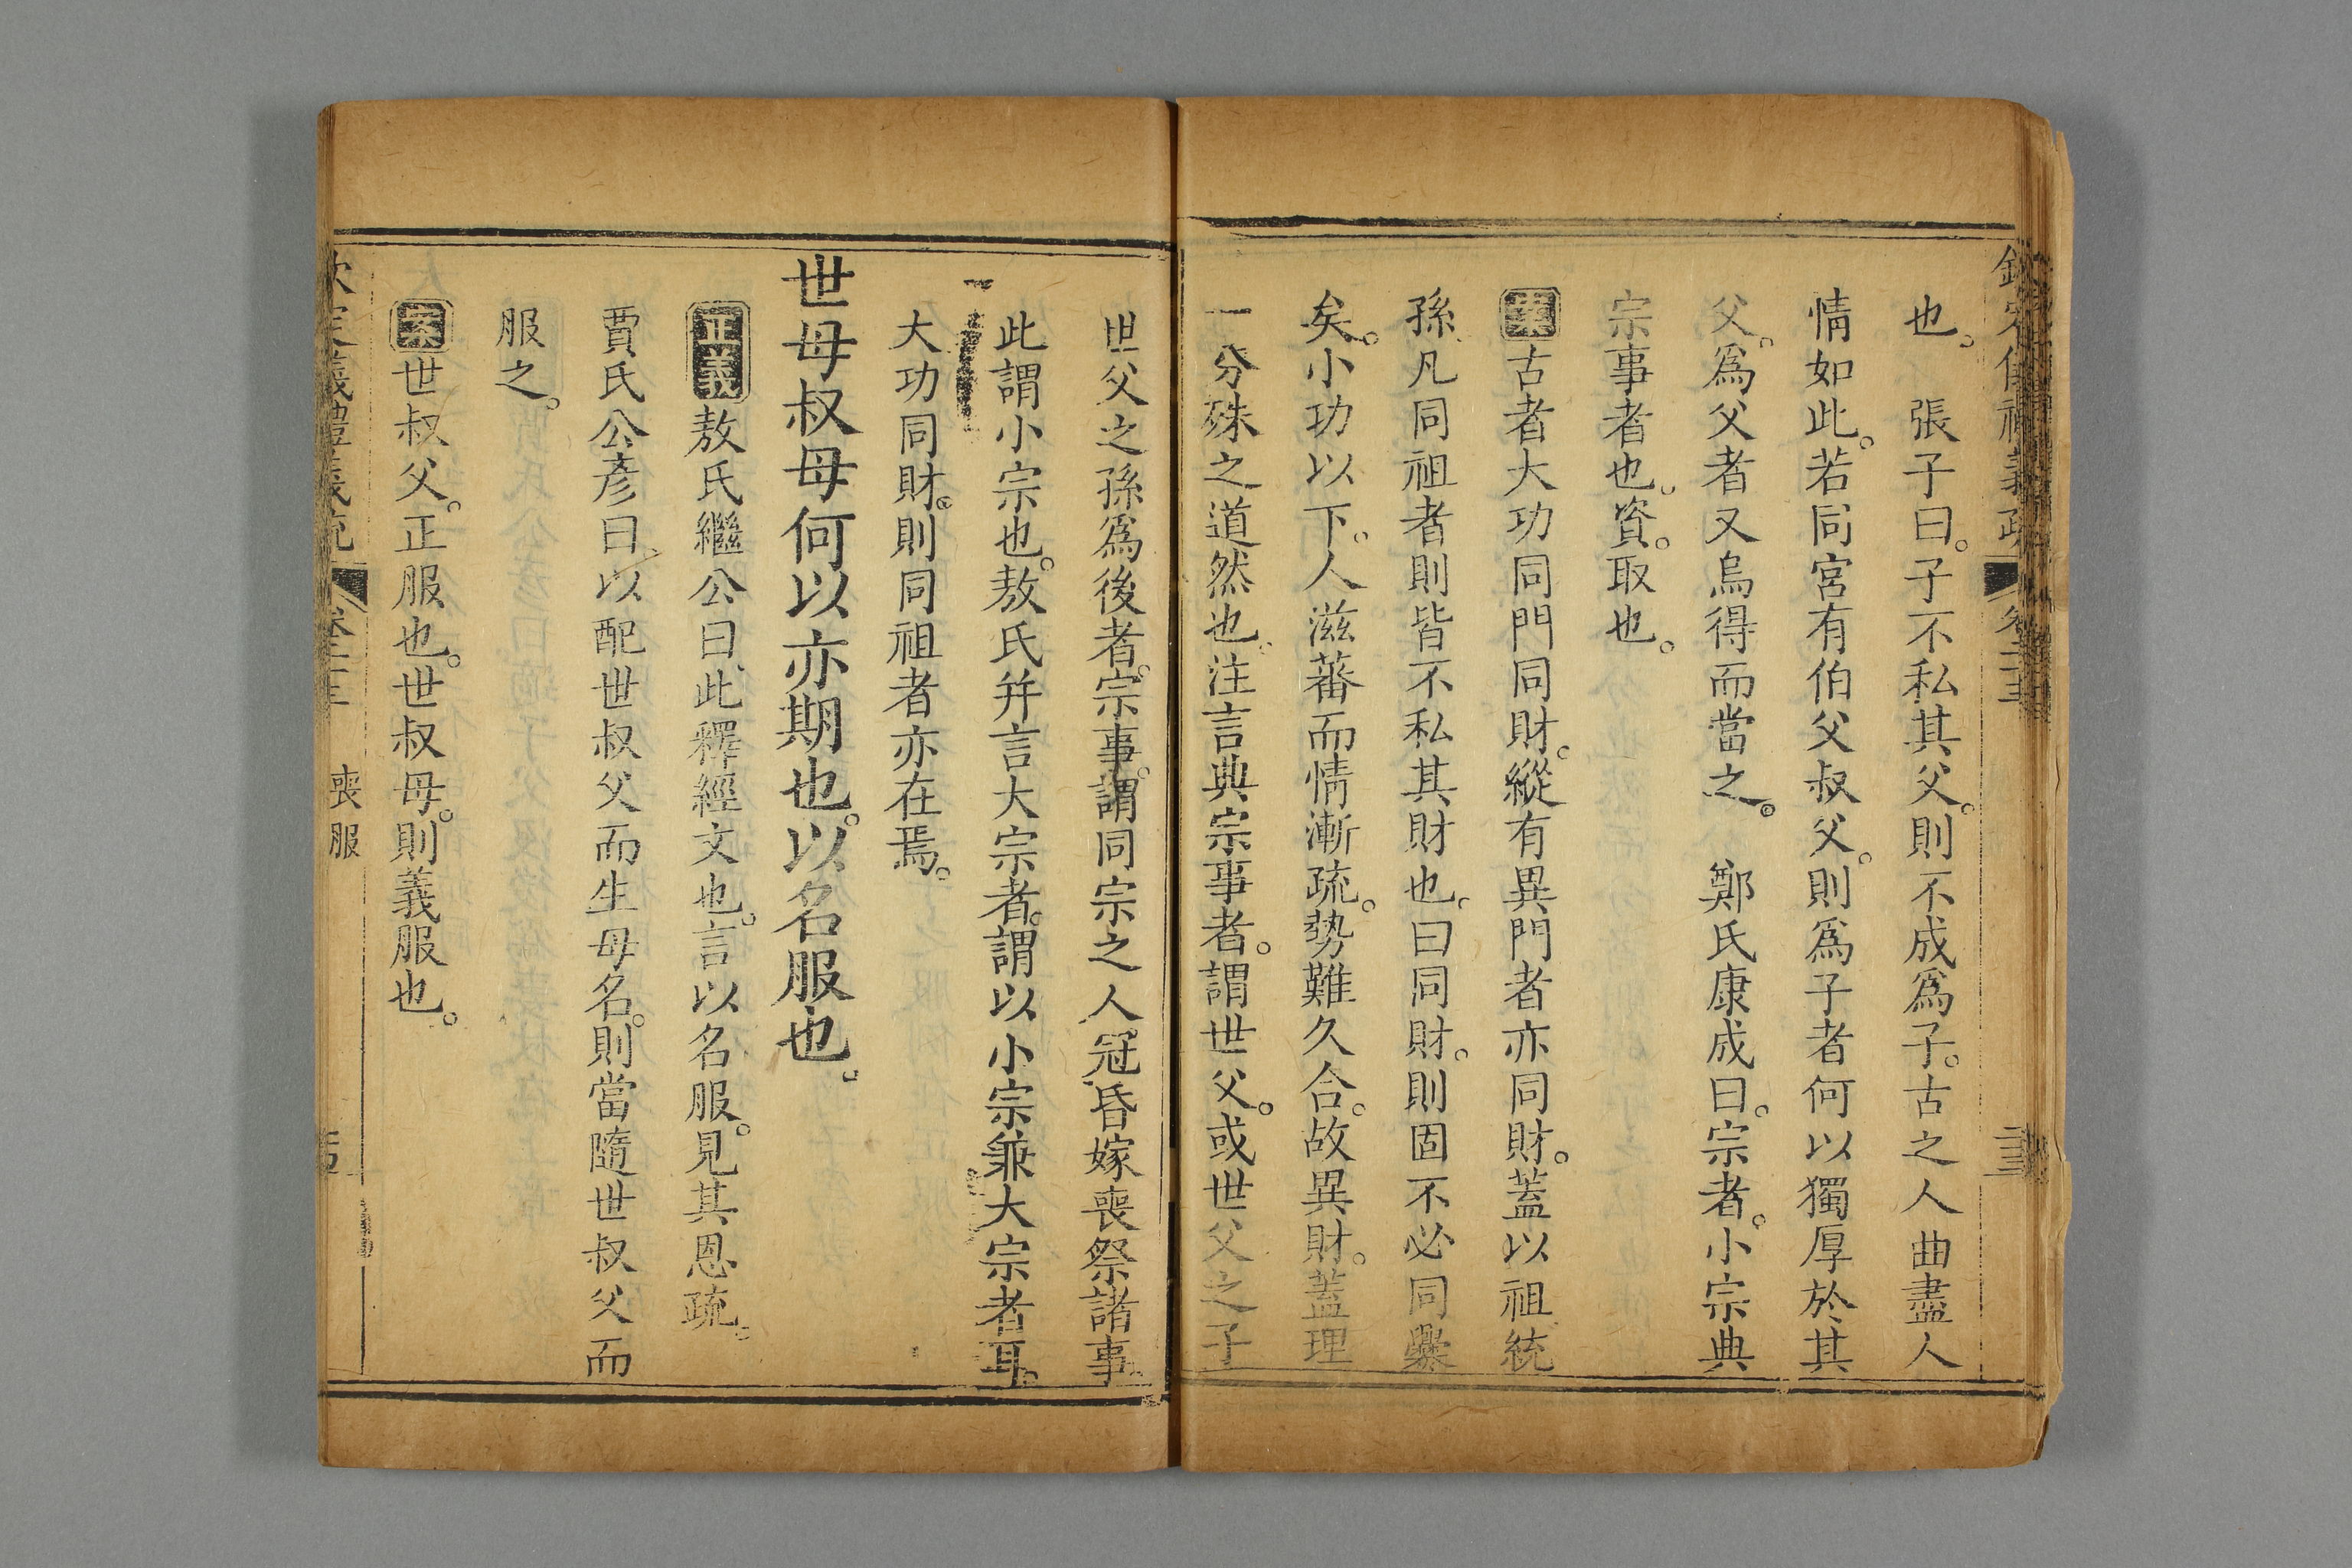 欽定儀禮義疏 卷二十三
也。 張子曰。子不私其父。則不成爲子。古之人曲盡人
情如此。若同宮有伯父叔父。則爲子者何以獨厚於其
父。爲父者又烏得而當之。 鄭氏康成曰。宗者。小宗典
宗事者也。資。取也。
案古者大功同門同財。縱有異門者亦同財。蓋以祖統
孫凡同祖者則皆不私其財也。曰同財。則固不必同爨
矣。小功以下。人滋蕃而情漸疏。勢難久合。故異財。蓋理
一分殊之道然也。注言典宗事者。謂世父。或世父之子
世父之孫爲後者。宗事。謂同宗之人冠昏嫁喪祭諸事。
此謂小宗也。敖氏幷言大宗者。謂以小宗兼大宗者耳。
大功同財。則同祖者亦在焉。
世母叔母何以亦期也。以名服也。
正義敖氏繼公曰。此釋經文也。言以名服。見其恩疏。
賈氏公彥曰。以配世叔父而生母名。則當隨世叔父而
服之。
案世叔父。正服也。世叔母。則義服也。
欽定儀禮義疏 卷二十三 喪服